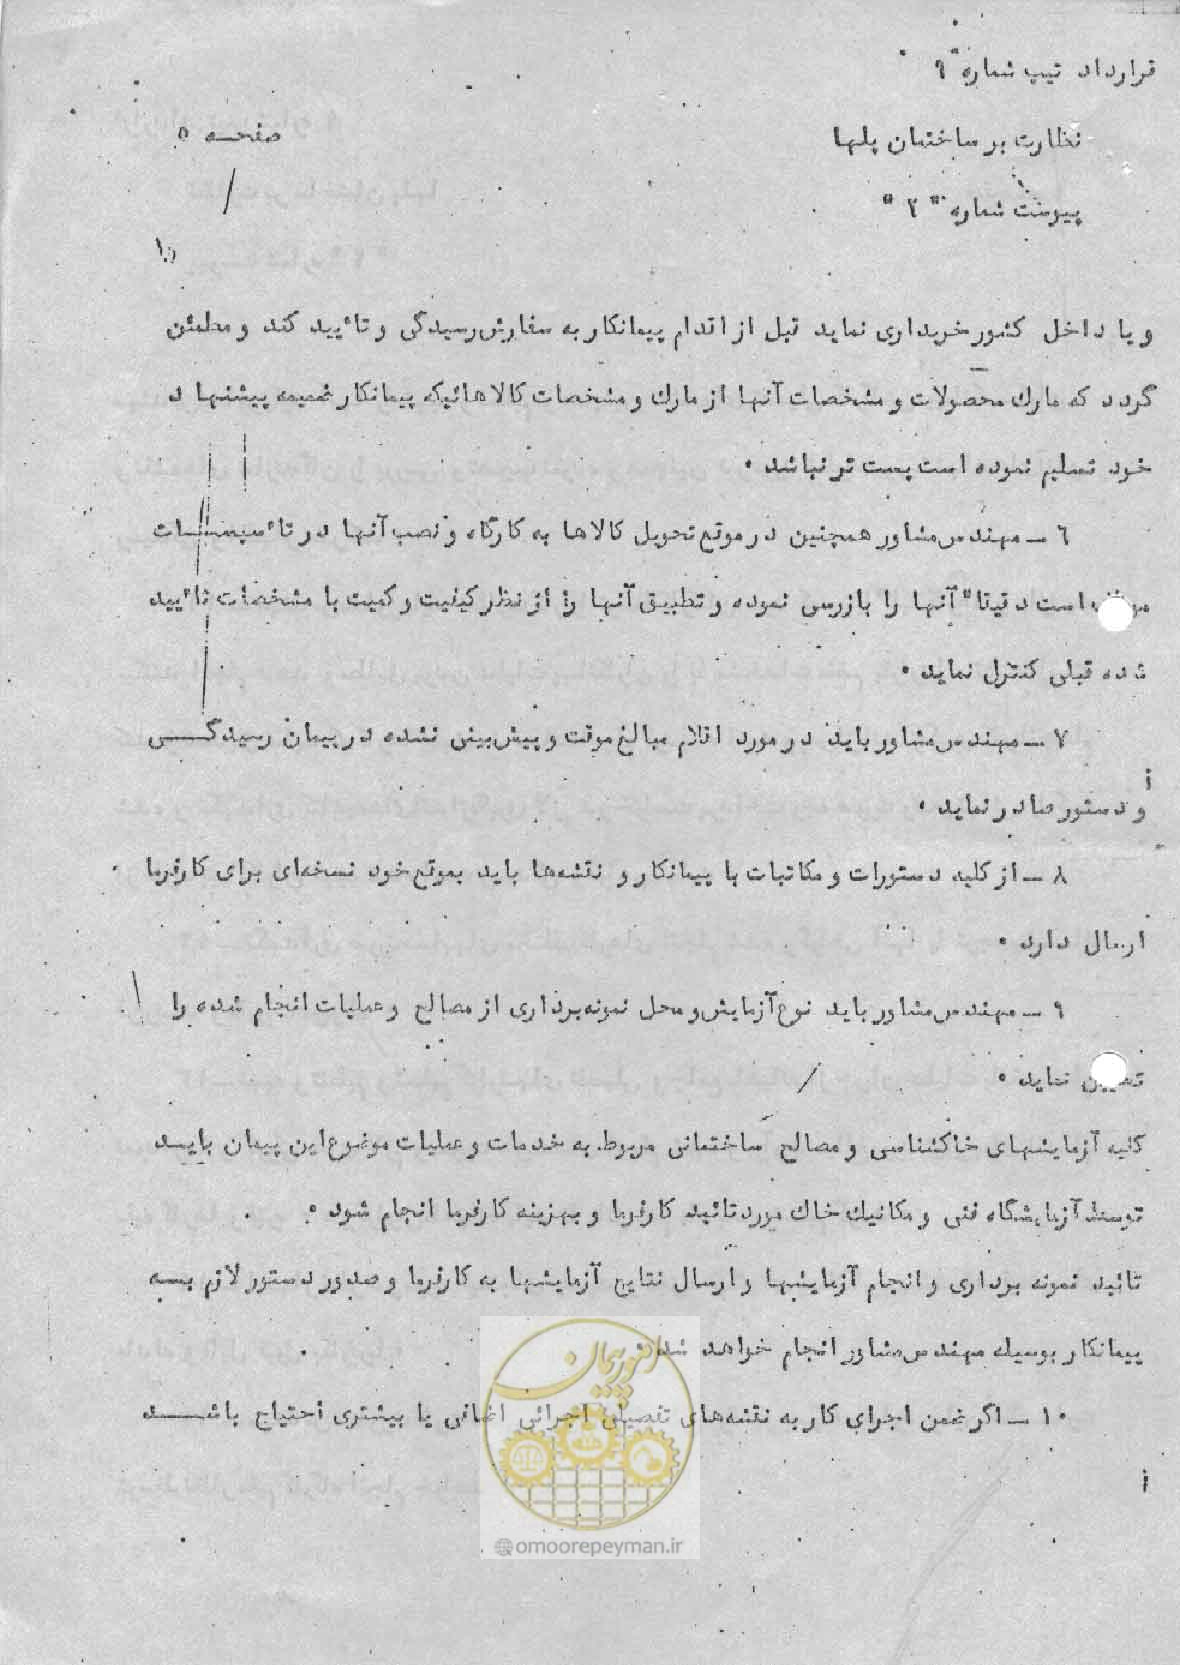 قرارداد تیپ شماره ۹
نظارت بر ساختمان پلها
صفحه ۵
پیوست شماره " ۲ "
و یا داخل کشور خریداری نماید قبل از اقدام پیمانکار به سفارش رسیدگی و تائید کند و مطمئن
گردد که مارک محصولات و مشخصات آنها از مارک و مشخصات کالاهائیکه پیمانکار ضمیمه پیشنهاد
خود تسلیم نموده است پست تر نباشد .
۶ ـ مهندس مشاور همچنین در موقع تحویل کالاها به کارگاه و نصب آنها در تاسیسات
موظف است دقیقا" آنها را بازرسی نموده و تطبیق آنها را از نظر کیفیت و کمیت با مشخصات تائید
شده قبلی کنترل نماید .
۷ ـ مهندس مشاور باید در مورد اقلام مبالغ موقت و پیش بینی نشده در پیمان رسیدگی
و دستور صادر نماید .
۸ ـ از کلیه دستورات و مکاتبات با پیمانکار و نقشه‌ها باید بموقع خود نسخه‌ای برای کارفرما
ارسال دارد .
۹ ـ مهندس مشاور باید نوع آزمایش و محل نمونه برداری از مصالح و عملیات انجام شده را
تعیین نماید .
کلیه آزمایشهای خاکشناسی و مصالح ساختمانی مربوط به خدمات و عملیات موضوع این پیمان بایــد
توسط آزمایشگاه فنی و مکانیک خاک مورد تائید کارفرما و بهزینه کارفرما انجام شود .
تائید نمونه برداری و انجام آزمایشها و ارسال نتایج آزمایشها به کارفرما و صدور دستور لازم بــه
پیمانکار بوسیله مهندس مشاور انجام خواهد شد .
۱۰ ـ اگر ضمن اجرای کار به نقشه‌های تفصیلی اجرائی اضافی یا بیشتری احتیاج باشــد
امور پیمان
@omoorepeyman.ir